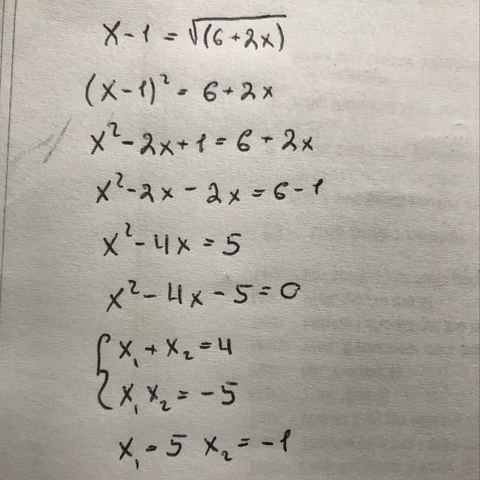 x-1 = √(6+2x)
(x-1)² = 6+2x
x²-2x+1=6+2x
x²-2x-2x=6-1
x²-4x=5
x²-4x-5=0
{x₁+x₂=4
x₁x₂=-5
x₁=5 x₂=-1